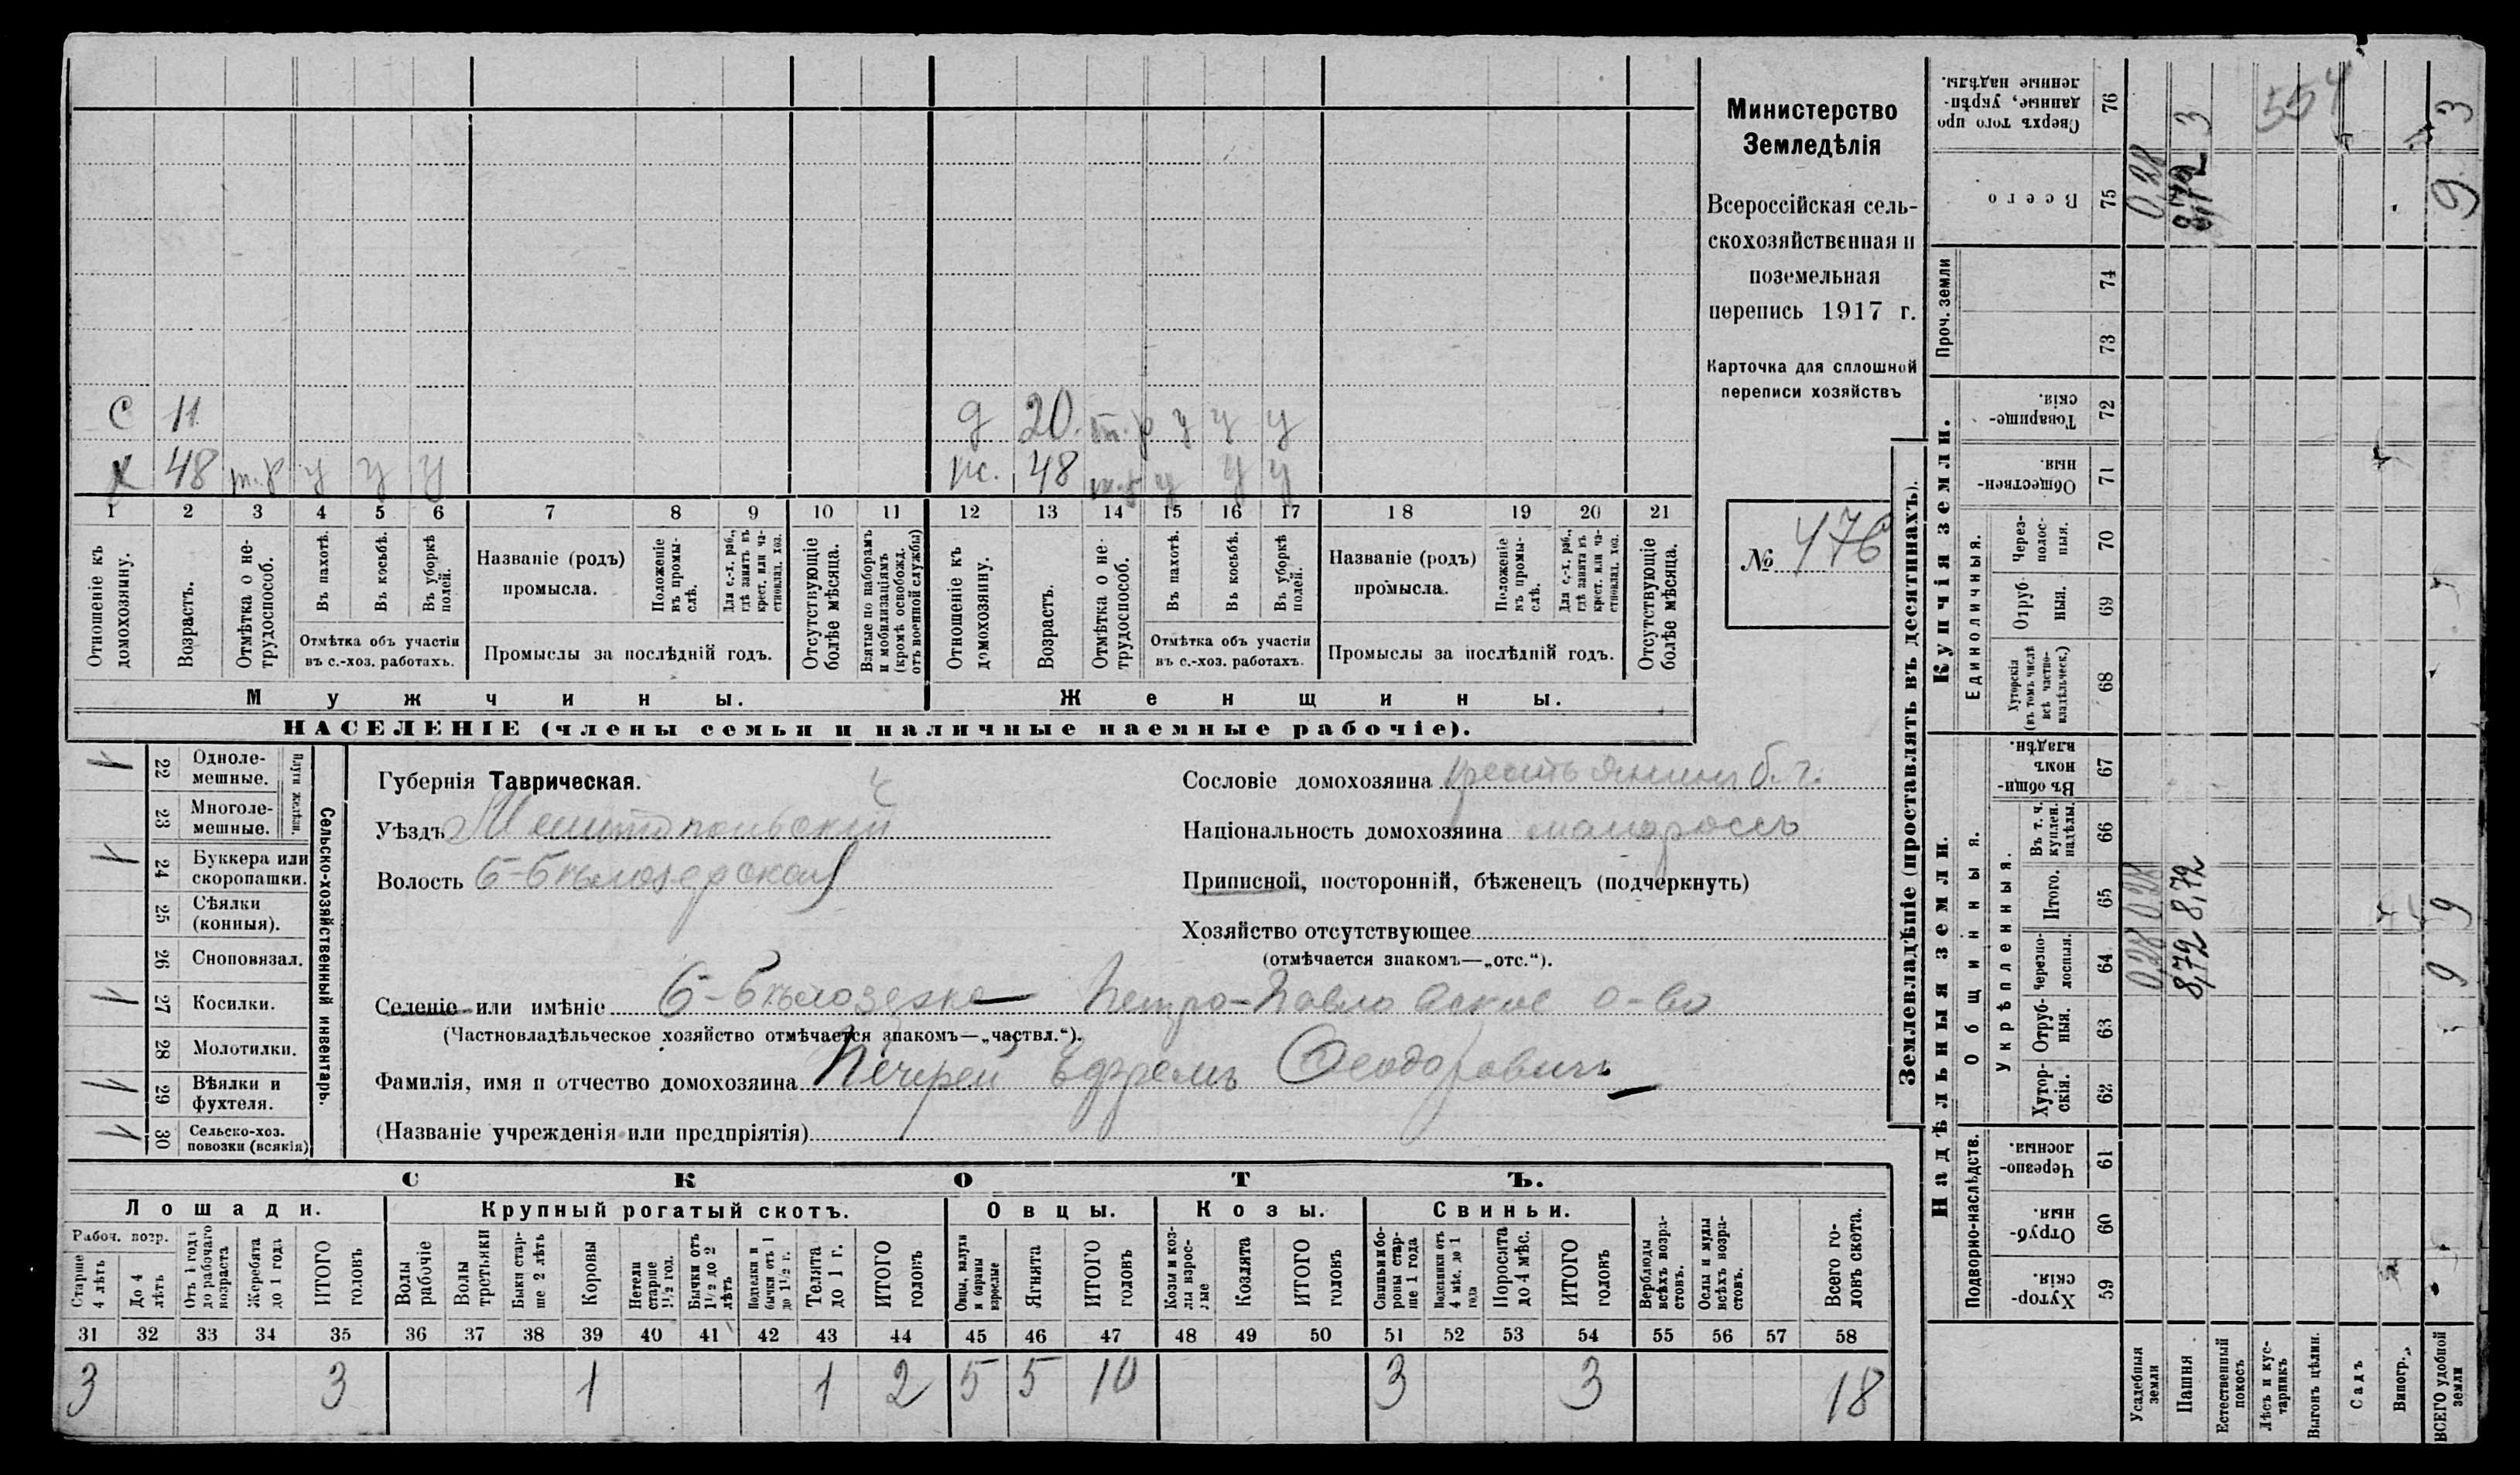 С 11
Х 48 т.р у у у
д 20. т.р у у у
ж. 48 т.р у у у
1 2 3 4 5 6 7 8 9 10 11 12 13 14 15 16 17 18 19 20 21
Отношеніе къ домохозяину.
Возрастъ.
Отмѣтка о не-трудоспособ.
Въ пахотѣ.
Въ косьбѣ.
Въ уборкѣ полей.
Отмѣтка объ участіи
въ с.-хоз. работахъ.
Названіе (родъ)
промысла.
Положеніе въ промы-слѣ.
Для с.-х. раб., гдѣ занятъ въ крест. или ча-стновлад. хоз.
Промыслы за послѣдній годъ.
Отсутствующіе болѣе мѣсяца.
Взятые по наборамъ и мобилизаціямъ (кромѣ освобожд. отъ военной службы)
Отношеніе къ домохозяину.
Возрастъ.
Отмѣтка о не-трудоспособ.
Въ пахотѣ.
Въ косьбѣ.
Въ уборкѣ полей.
Отмѣтка объ участіи
въ с.-хоз. работахъ.
Названіе (родъ)
промысла.
Положеніе въ промы-слѣ.
Для с.-х. раб., гдѣ занята въ крест. или ча-стновлад. хоз.
Промыслы за послѣдній годъ.
Отсутствующіе болѣе мѣсяца.
Мужчины.
Женщины.
НАСЕЛЕНІЕ (члены семьи и наличные наемные рабочіе).
Министерство
Земледѣлія
Всероссійская сель-
скохозяйственная и
поземельная
перепись 1917 г.
Карточка для сплошной
переписи хозяйствъ
№ 476
22 Одноле-мешные.
23 Многоле-мешные.
Плуги желѣзн.
24 Буккера или скоропашки.
25 Сѣялки (конныя).
26 Сноповязал.
27 Косилки.
28 Молотилки.
29 Вѣялки и фухтеля.
30 Сельско-хоз. повозки (всякія)
Сельско-хозяйственный инвентарь.
Губернія Таврическая.
Уѣздъ Мелитопольскій
Волость Б-Бѣлозерская
Сословіе домохозяина крестьянинъ б. г.
Національность домохозяина малороссъ
Приписной, посторонній, бѣженецъ (подчеркнуть)
Хозяйство отсутствующее
(отмѣчается знакомъ—„отс.“).
Селеніе или имѣніе Б-Бѣлозерка Петро-Павловское о-во
(Частновладѣльческое хозяйство отмѣчается знакомъ—„частвл.“).
Фамилія, имя и отчество домохозяина Печерей Ефремъ Ѳеодоровичъ
(Названіе учрежденія или предпріятія)
СКОТЪ.
Лошади. Крупный рогатый скотъ. Овцы. Козы. Свиньи.
Рабоч. возр.
Старше 4 лѣтъ
До 4 лѣтъ
Отъ 1 года до рабочаго возраста
Жеребята до 1 года
ИТОГО головъ
Волы рабочіе
Волы третьяки
Быки стар-ше 2 лѣтъ
Коровы
Нетели старше 1½ год.
Бычки отъ 1½ до 2 лѣтъ
Подтелки и бычки отъ 1 до 1½ г.
Телята до 1 г.
ИТОГО головъ
Овцы, валухи и бараны взрослые
Ягнята
ИТОГО головъ
Козы и коз-лы взрос-лые
Козлята
ИТОГО головъ
Свиньи и бо-ровы стар-ше 1 года
Подсвинки отъ 4 мѣс. до 1 года
Поросята до 4 мѣс.
ИТОГО головъ
Верблюды всѣхъ возра-стовъ.
Ослы и мулы всѣхъ возра-стовъ.
Всего го-ловъ скота.
31 32 33 34 35 36 37 38 39 40 41 42 43 44 45 46 47 48 49 50 51 52 53 54 55 56 57 58
3 3 1 1 2 5 5 10 3 3 18
Землевладѣніе (проставлять въ десятинахъ).
Купчія земли.
Надѣльныя земли.
Сверхъ того про данные, укрѣп-ленные надѣлы. 76
Всего 75
Проч. земли 74 73
Товарище-скія. 72
Обществен-ныя. 71
Единоличныя.
Через-полос-ныя. 70
Отруб-ныя. 69
Хуторскія (въ томъ числѣ всѣ частно-владѣльческ.) 68
Общинныя.
Въ общин-номъ владѣн. 67
Укрѣпленныя.
Въ т. ч. куплен. надѣлы. 66
Итого. 65
Черезпо-лосныя. 64
Отруб-ныя. 63
Хутор-скія. 62
Подворно-наслѣдств.
Черезпо-лосныя. 61
Отруб-ныя. 60
Хутор-скія. 59
Усадебныя земли 0,28 0,28 0,28
Пашня 8,72 8,72 8,72 3
Естественный покосъ
Лѣсъ и кус-тарникъ
Выгонъ цѣлин.
Садъ
Виногр.
ВСЕГО удобной земли 9 9 9 3
554